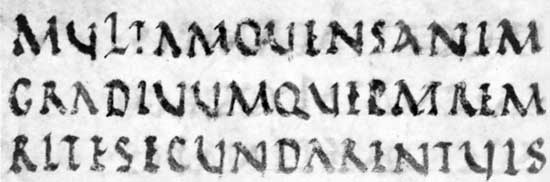 MULTAMOUENSANIM
GRADIUUMQUEPATREM
RITESECUNDARENTUIS